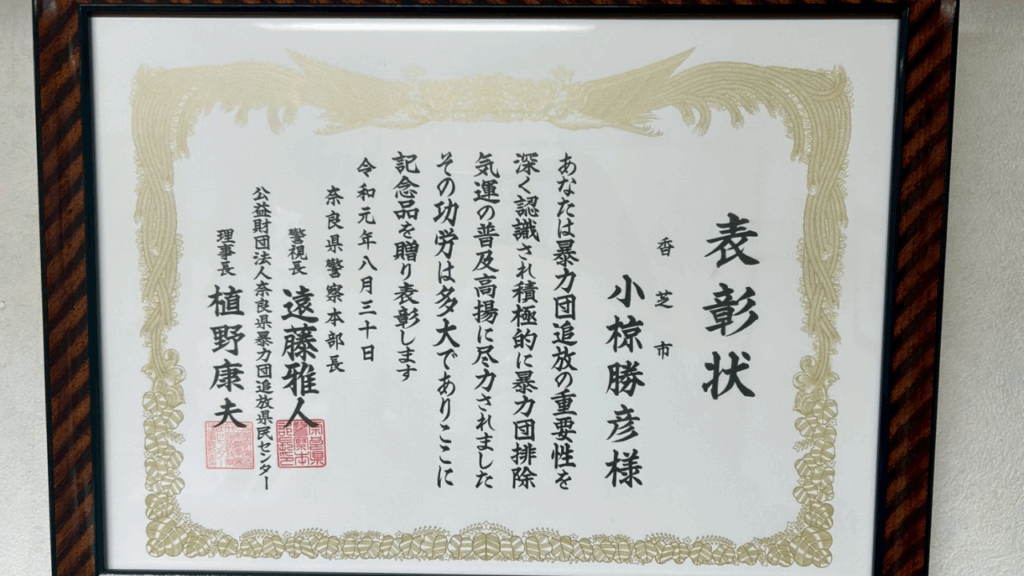 表彰状
香芝市
小椋勝彦様
あなたは暴力団追放の重要性を
深く認識され積極的に暴力団排除
気運の普及高揚に尽力されました
その功労は多大でありここに
記念品を贈り表彰します
令和元年八月三十日
奈良県警察本部長
警視長 遠藤雅人
公益財団法人奈良県暴力団追放県民センター
理事長 植野康夫